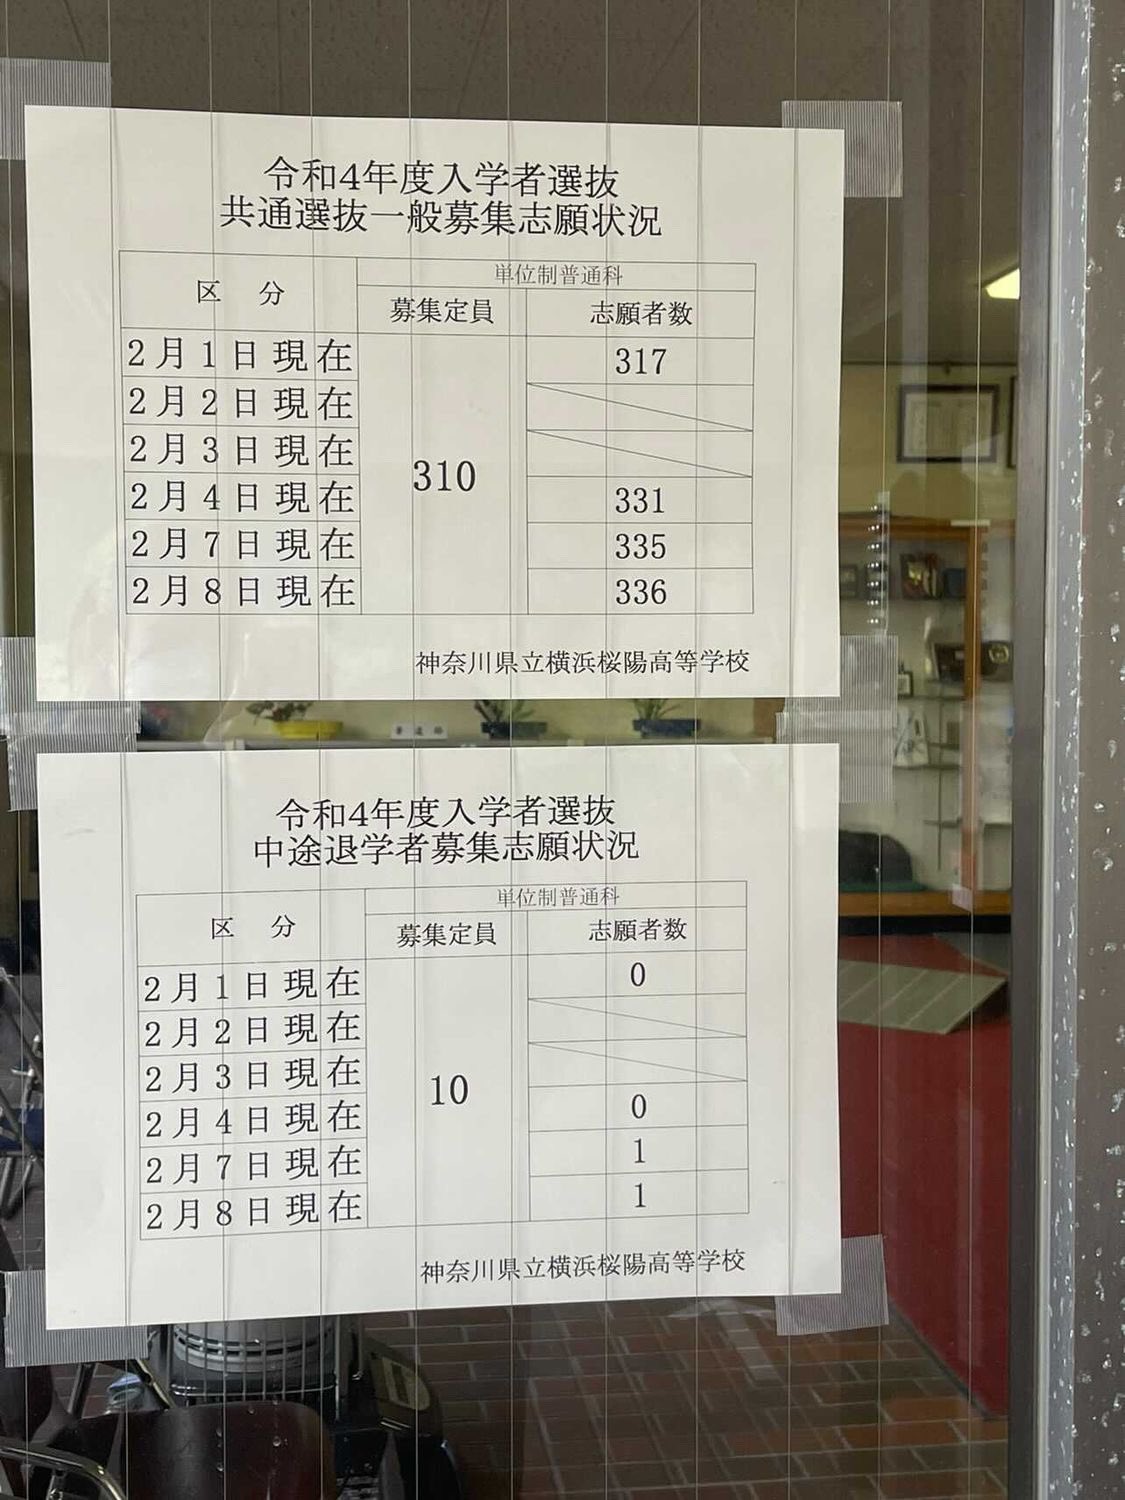 令和4年度入学者選抜
共通選抜一般募集志願状況
区 分
単位制普通科
募集定員 志願者数
2月1日現在 317
2月2日現在
2月3日現在
310
2月4日現在 331
2月7日現在 335
2月8日現在 336
神奈川県立横浜桜陽高等学校
令和4年度入学者選抜
中途退学者募集志願状況
区 分
単位制普通科
募集定員 志願者数
2月1日現在 0
2月2日現在
2月3日現在
10
2月4日現在 0
2月7日現在 1
2月8日現在 1
神奈川県立横浜桜陽高等学校